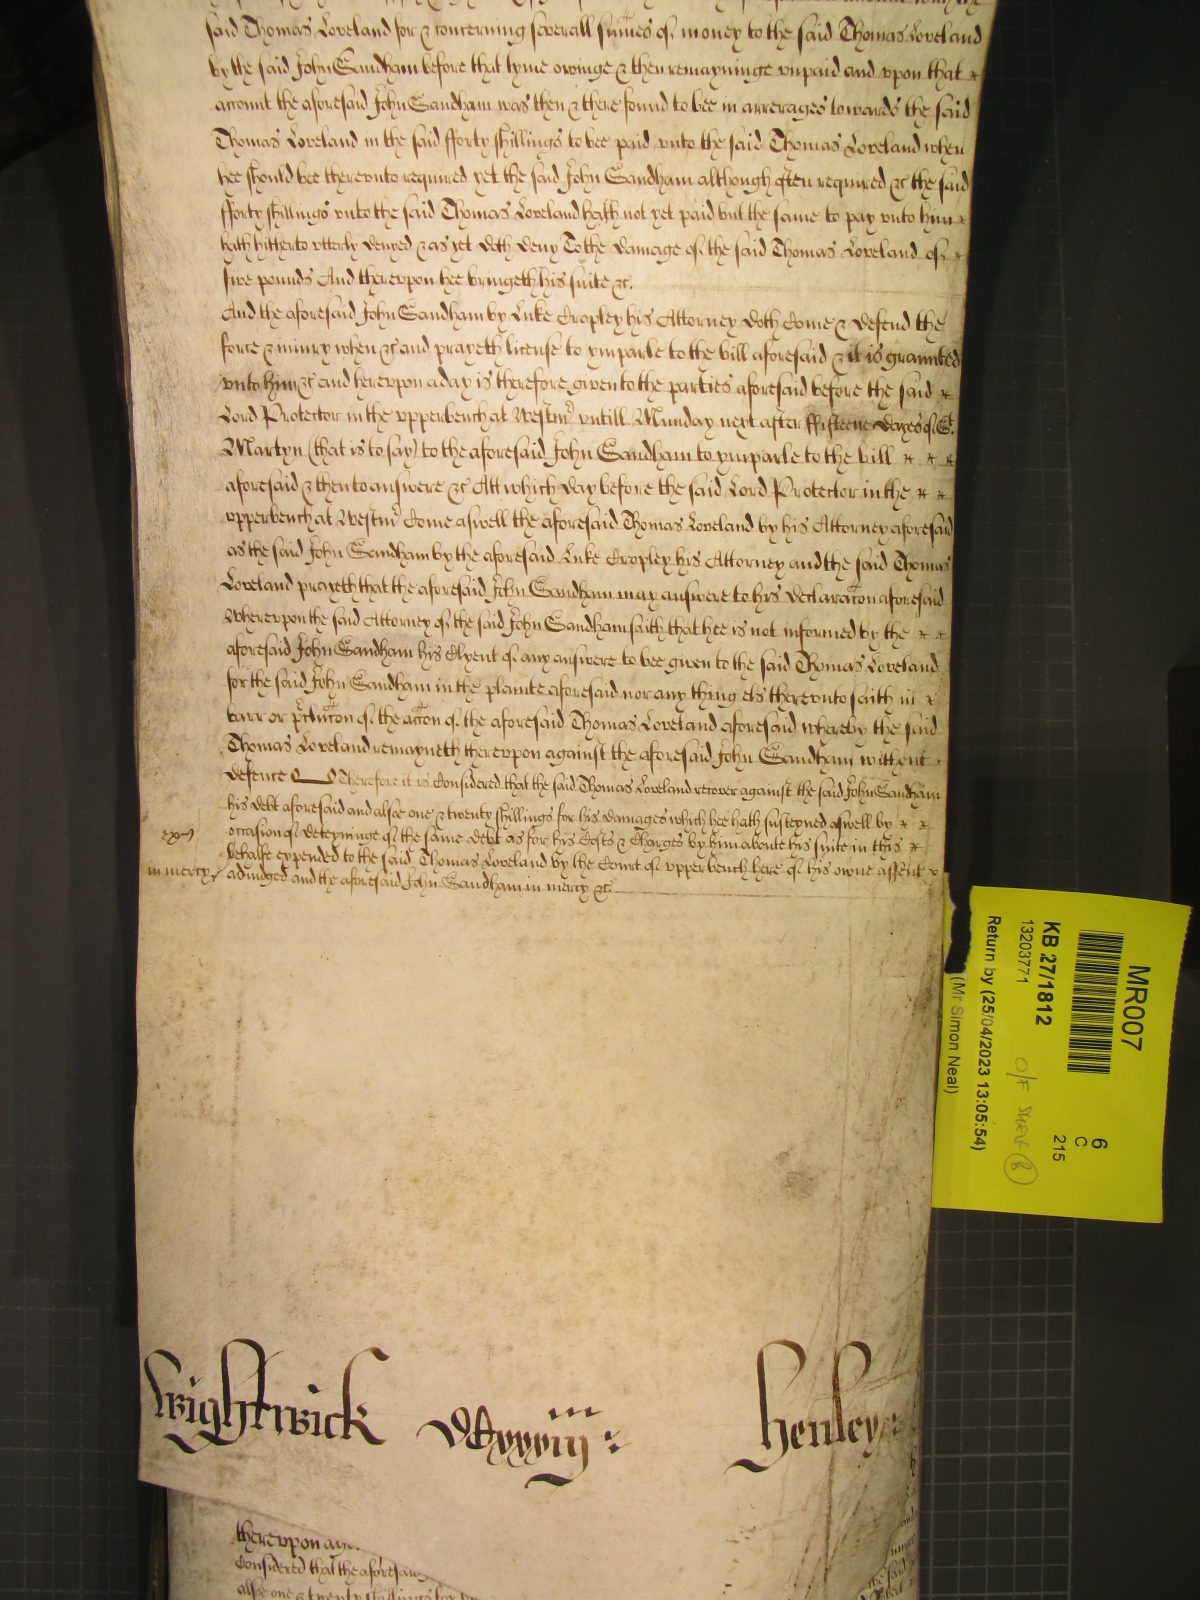 said Thomas Loveland for & concerning severall sumes of money to the said Thomas Loveland
by the said John Sandham before that tyme oweinge & then remayninge vnpaid and vpon that
account the aforesaid John Sandham was then & there found to bee in arrerages towards the said
Thomas Loveland in the said fforty shillings to bee paid vnto the said Thomas Loveland when
hee should bee therevnto required yet the said John Sandham although often required &c the said
fforty shillings vnto the said Thomas Loveland hath not yet paid but the same to pay vnto him
hath hitherto vtterly denyed & as yet doth deny To the damage of the said Thomas Loveland of
five pounds And therevpon hee bringeth his suite &c.
And the aforesaid John Sandham by Luke Cropley his Attorney doth Come & defend the
force & iniury when &c and prayeth license to ymparle to the bill aforesaid & it is graunted
vnto him &c and herevpon a day is therefore given to the parties aforesaid before the said
Lord Protector in the vpperbench at Westmr vntill Munday next after ffifteene dayes of St.
Martyn (that is to say) to the aforesaid John Sandham to ymparle to the bill
aforesaid & then to answere &c Att which day before the said Lord Protector in the
vpperbench at Westmr Come aswell the aforesaid Thomas Loveland by his Attorney aforesaid
as the said John Sandham by the aforesaid Luke Cropley his Attorney and the said Thomas
Loveland prayeth that the aforesaid John Sandham may answere to his declaracon aforesaid
Wherevpon the said Attorney of the said John Sandham saith that hee is not informed by the
aforesaid John Sandham his Clyent of any answere to bee given to the said Thomas Loveland
for the said John Sandham in the plainte aforesaid nor any thing els therevnto saith in
barr or preclucon of the accon of the aforesaid Thomas Loveland aforesaid whereby the said
Thomas Loveland remayneth therevpon against the aforesaid John Sandham without
defence Therefore it is Considered that the said Thomas Loveland recover against the said John Sandham
his debt aforesaid and alsoe one & twenty shillings for his damages which hee hath susteyned aswell by
occasion of deteyninge of the same debt as for his Costs & Charges by him aboute his suite in this
behalfe expended to the said Thomas Loveland by the Court of vpperbench here of his owne assent
in mercy adiudged and the aforesaid John Sandham in mercy &c.
Wightwick
Henley
therevpon
Considered that the aforesaid
alsoe one & twenty shillings for
MR007
6
C
215
KB 27/1812
13203771
O/F
Return by (25/04/2023 13:05:54)
(Mr Simon Neal)